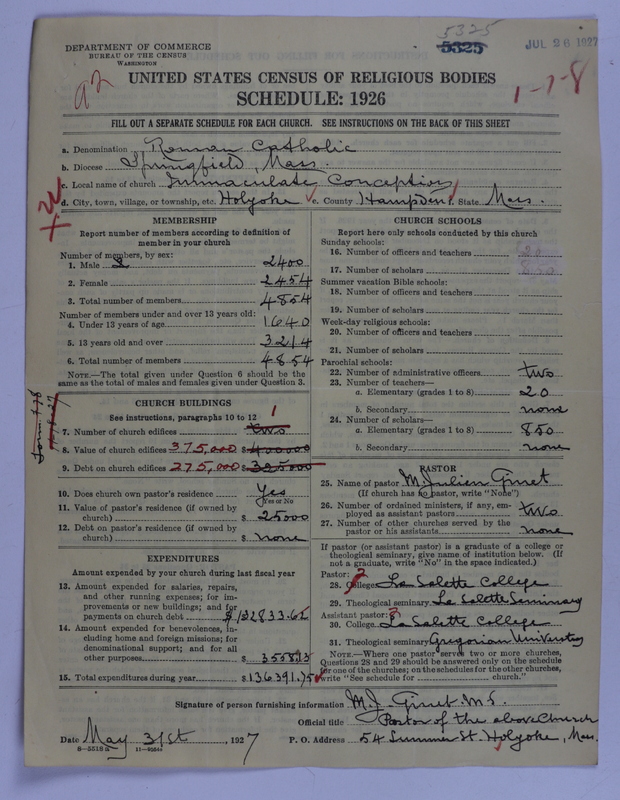 5325
5325
JUL 26 1927
DEPARTMENT OF COMMERCE
BUREAU OF THE CENSUS
WASHINGTON
92
1-7-8
UNITED STATES CENSUS OF RELIGIOUS BODIES
SCHEDULE: 1926
FILL OUT A SEPARATE SCHEDULE FOR EACH CHURCH. SEE INSTRUCTIONS ON THE BACK OF THIS SHEET
a. Denomination Roman Catholic
b. Diocese Springfield, Mass.
c. Local name of church Immaculate Conception
d. City, town, village, or township, etc. Holyoke e. County Hampden f. State Mass.
MEMBERSHIP
Report number of members according to definition of
member in your church
Number of members, by sex:
1. Male 2400
2. Female 2454
3. Total number of members 4854
Number of members under and over 13 years old:
4. Under 13 years of age 1640
5. 13 years old and over 3214
6. Total number of members 4854
NOTE.—The total given under Question 6 should be the
same as the total of males and females given under Question 3.
CHURCH BUILDINGS
See instructions, paragraphs 10 to 12
7. Number of church edifices two 1
8. Value of church edifices 375,000 $400000
9. Debt on church edifices 275,000 $325000
10. Does church own pastor's residence Yes
Yes or No
11. Value of pastor's residence (if owned by
church) $ 25000
12. Debt on pastor's residence (if owned by
church) $ none
EXPENDITURES
Amount expended by your church during last fiscal year
13. Amount expended for salaries, repairs,
and other running expenses; for im-
provements or new buildings; and for
payments on church debt $ 132833.62
14. Amount expended for benevolences, in-
cluding home and foreign missions; for
denominational support; and for all
other purposes $ 3558.13
15. Total expenditures during year $136391.75
CHURCH SCHOOLS
Report here only schools conducted by this church
Sunday schools:
16. Number of officers and teachers
17. Number of scholars
Summer vacation Bible schools:
18. Number of officers and teachers
19. Number of scholars
Week-day religious schools:
20. Number of officers and teachers
21. Number of scholars
Parochial schools:
22. Number of administrative officers two
23. Number of teachers—
a. Elementary (grades 1 to 8) 20
b. Secondary none
24. Number of scholars—
a. Elementary (grades 1 to 8) 850
b. Secondary none
PASTOR
25. Name of pastor M. Julien Ginet
(If church has no pastor, write "None")
26. Number of ordained ministers, if any, em-
ployed as assistant pastors two
27. Number of other churches served by the
pastor or his assistants none
If pastor (or assistant pastor) is a graduate of a college or
theological seminary, give name of institution below. (If
not a graduate, write "No" in the space indicated.)
Pastor: 2
28. College La Salette College
29. Theological seminary La Salette Seminary
Assistant pastor: 2
30. College La Salette College
31. Theological seminary Gregorian University
NOTE.—Where one pastor serves two or more churches,
Questions 28 and 29 should be answered only on the schedule
for one of the churches; on the schedules for the other churches,
write "See schedule for church."
Signature of person furnishing information M. J. Ginet M.S.
Official title Pastor of the above Church
Date May 31st, 1927 P. O. Address 54 Summer St. Holyoke, Mass.